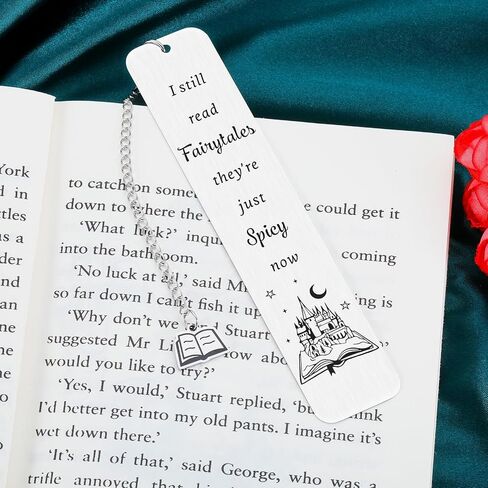 I still
read
Fairytales
they're
just
Spicy
now
York
to catch on some
down to where the
could get it
'What luck?' inqui
coming
into the bathroom.
'No luck at all,' said
so far down I can't fish it up
ing is
'Why don't we
Stuart
suggested Mr Li
ow about
would you like to try?'
'Yes, I would,' Stuart replied, 'but
think
I'd better get into my old pants. I imagine it's
wet down there.'
'It's all of that,' said George, who was a
trifle annoyed that his